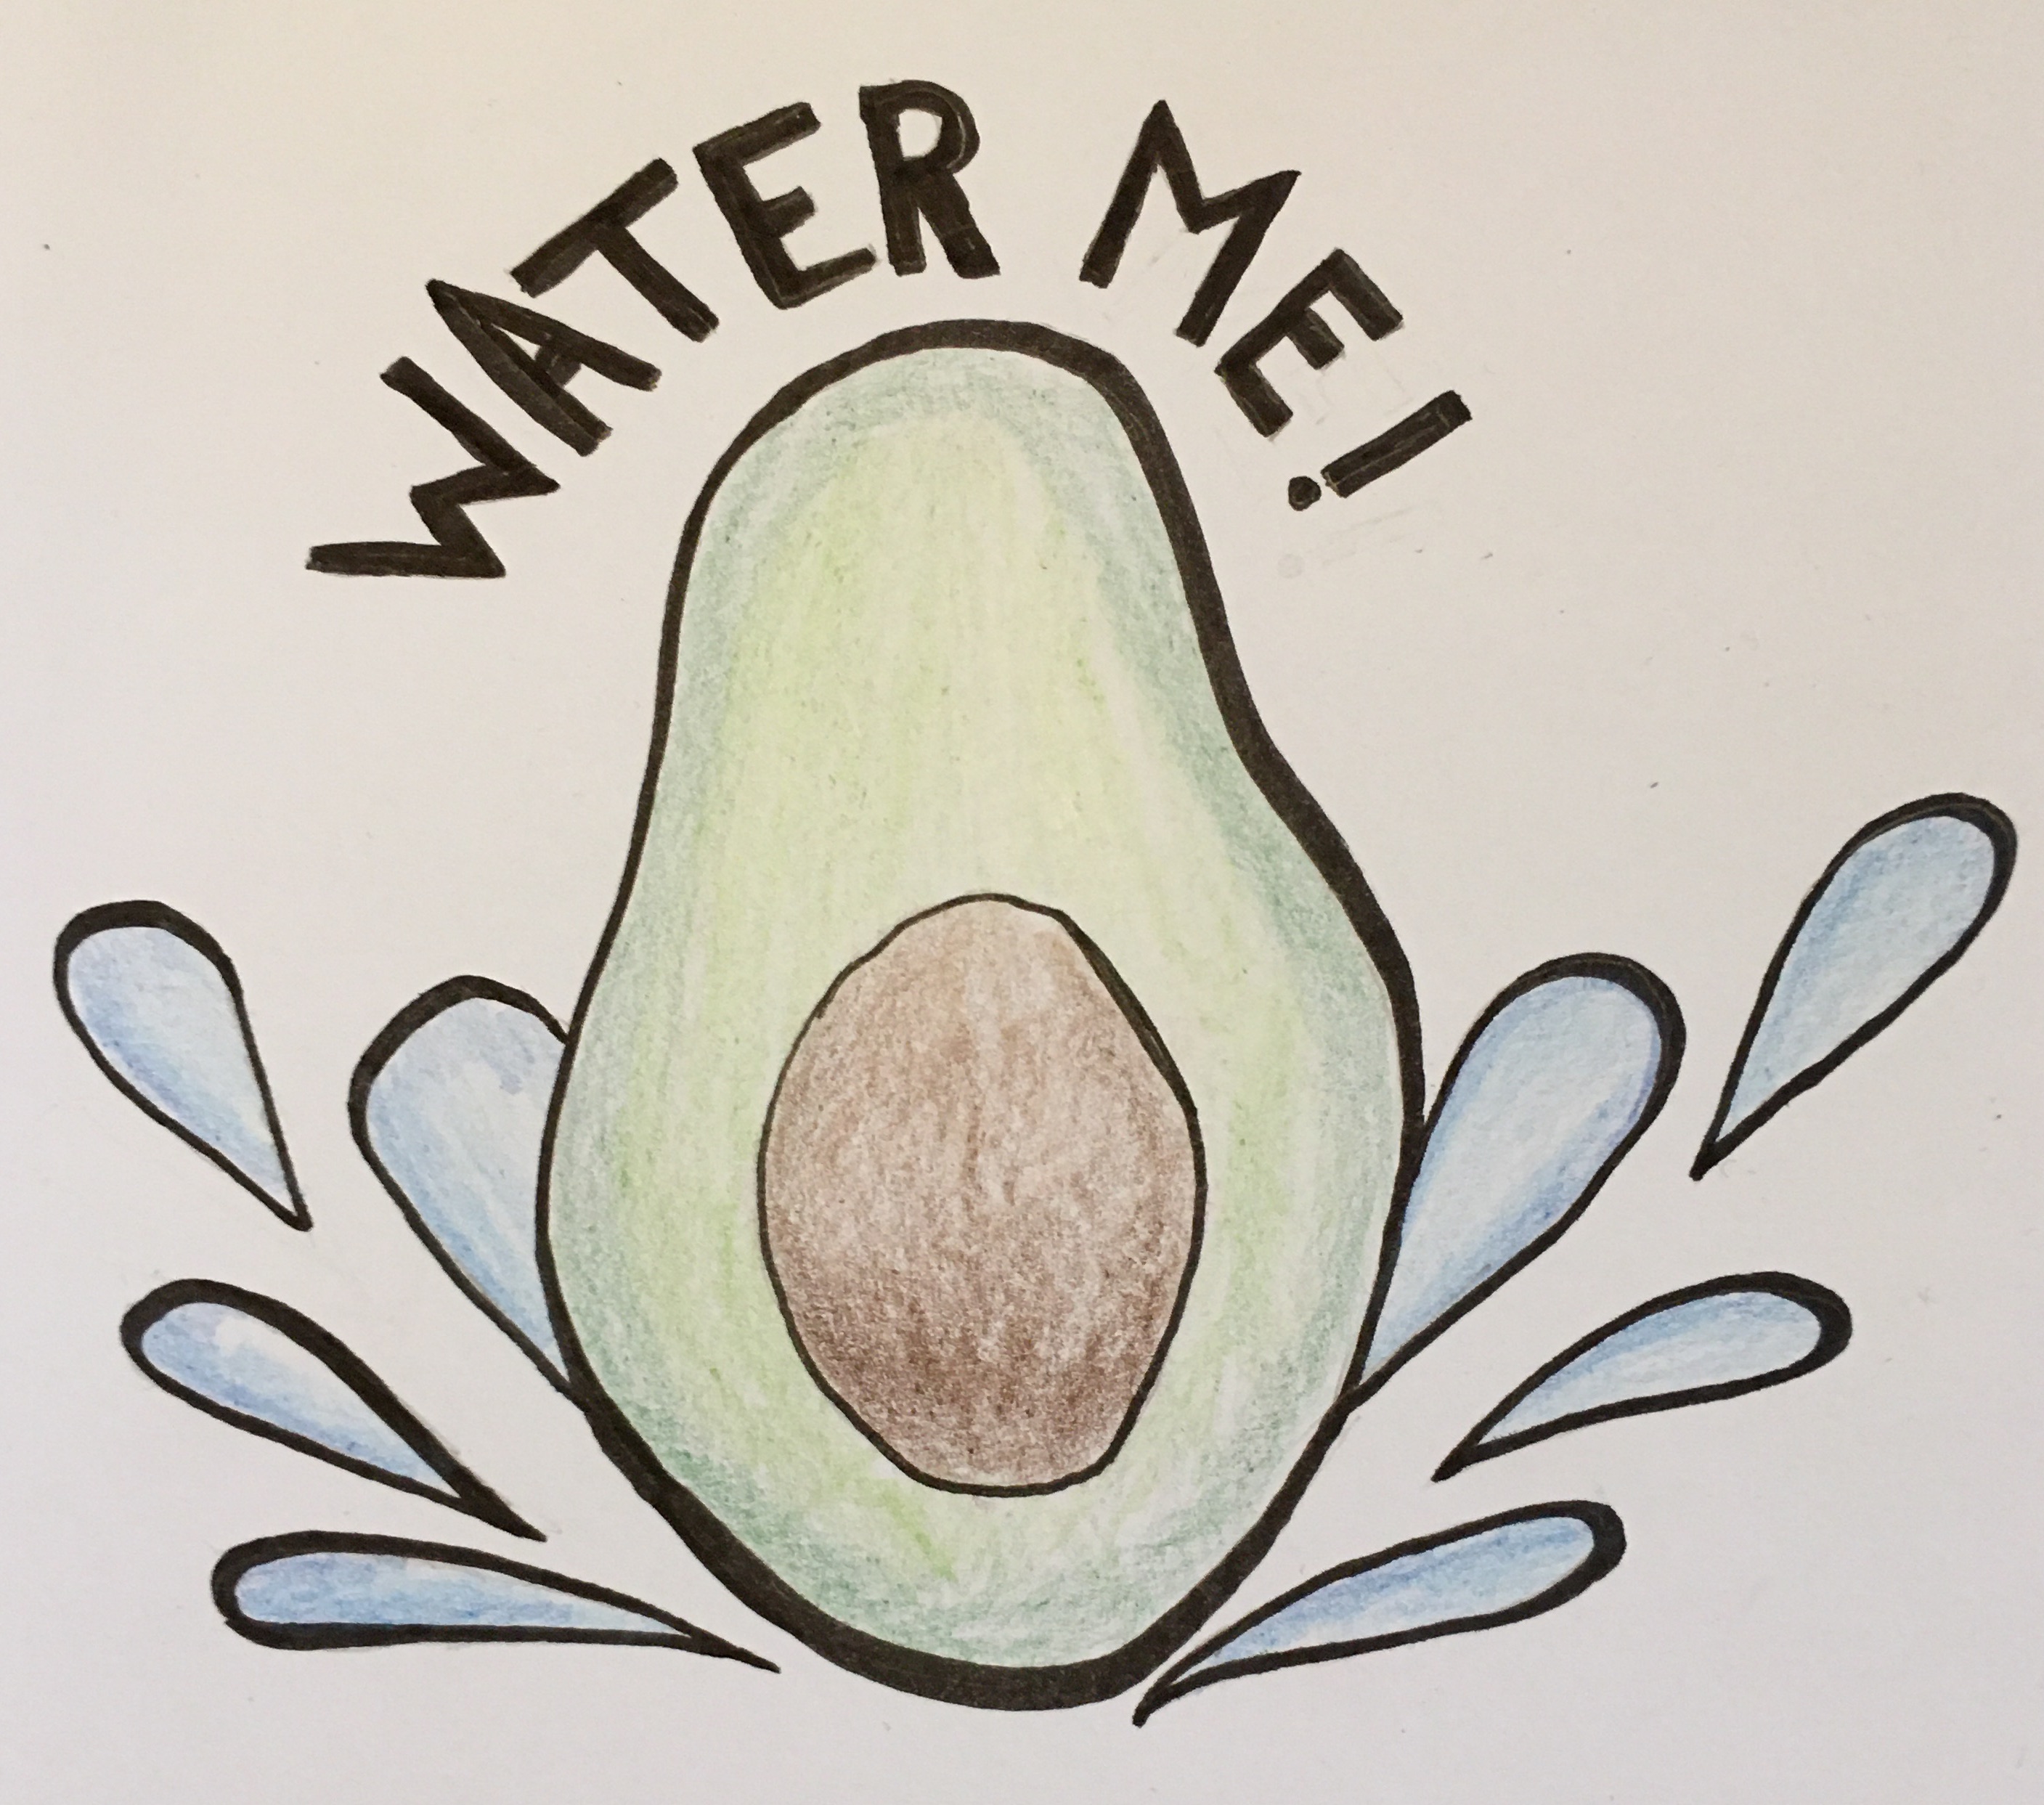 WATER ME!